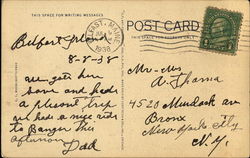 THIS SPACE FOR WRITING MESSAGES
POST CARD
BELFAST, MAINE
1938
Belfast Maine
8-8-38
we got here
and had a
pleasant trip
had a nice ride
to Bangor this
afternoon
Dad
Mr-mrs
A. Thoma
4520 Murdock av
Bronx
New York City
N.Y.